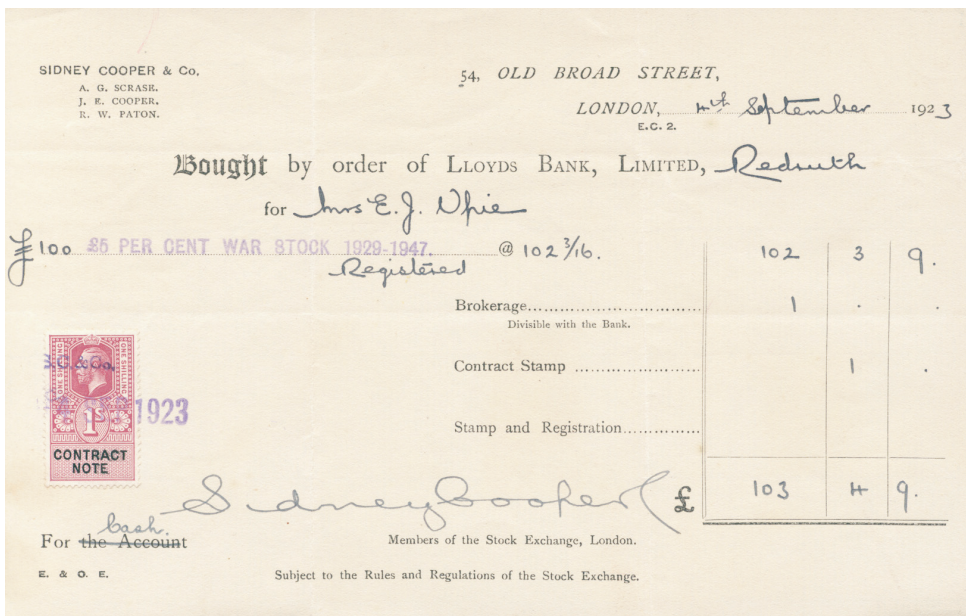 SIDNEY COOPER & Co.
A. G. SCRASE.
J. E. COOPER.
R. W. PATON.
54, OLD BROAD STREET,
LONDON, 4th September 1923
E.C. 2.
Bought by order of LLOYDS BANK, LIMITED, Redruth
for Mrs E. J.
£100 £5 PER CENT WAR STOCK 1929-1947. @ 102 3/16. 102 3 9.
Registered
Brokerage 1 . .
Divisible with the Bank.
Contract Stamp 1 .
Stamp and Registration
ONE SHILLING ONE SHILLING
S.C. & Co.
1923
1S
CONTRACT
NOTE
£ 103 4 9.
Sidney Cooper
Cash.
For the Account
Members of the Stock Exchange, London.
E. & O. E.
Subject to the Rules and Regulations of the Stock Exchange.